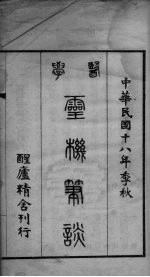 中華民國十八年季秋
醫學
靈機筆談
醒廬精舍刊行